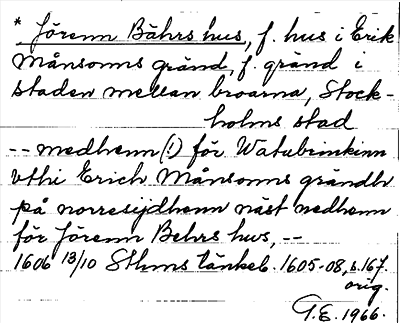 * Jörenn Bährs hus, f. hus i Erik
Månsonns gränd, f. gränd i
staden mellan broarna, Stock-
holms stad
-- medhenn(!) för Watubrinkinn
vthi Erich Månsonns grändh
på norresijdhenn näst nedhenn
för Jörenn Behrs hus, --
1606 13/10 Sthms tänkeb. 1605-08, s. 167.
orig.
G.E. 1966.